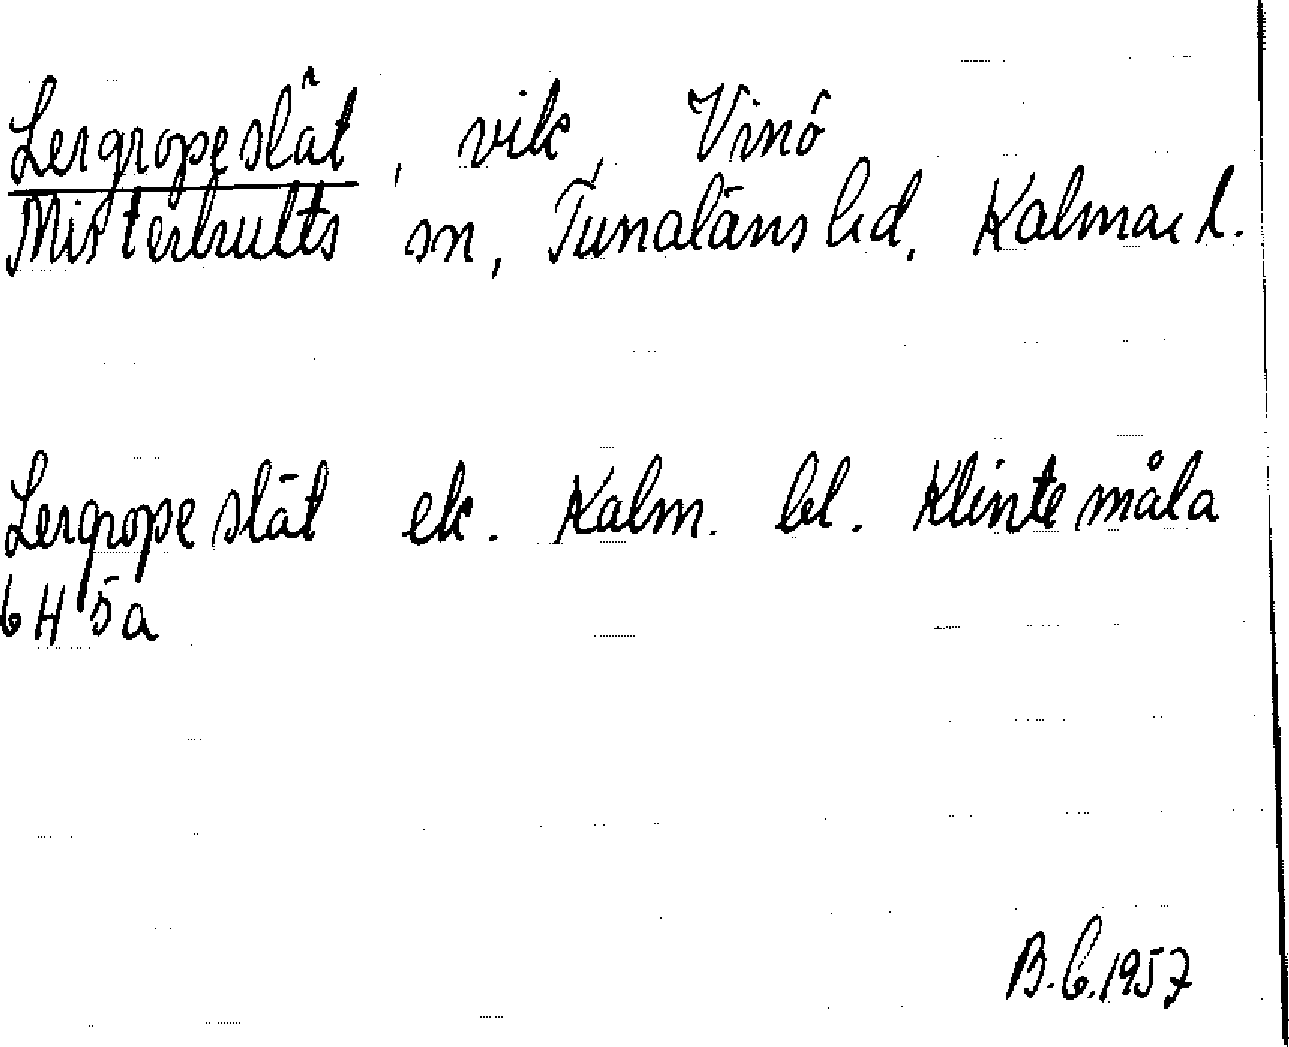 Lergropeslät, vik, Vinö
Misterhults sn, Tunaläns hd, Kalmar l.
Lergropeslät ek. Kalm. bl. Klintemåla
6H 5a
B.C.1957